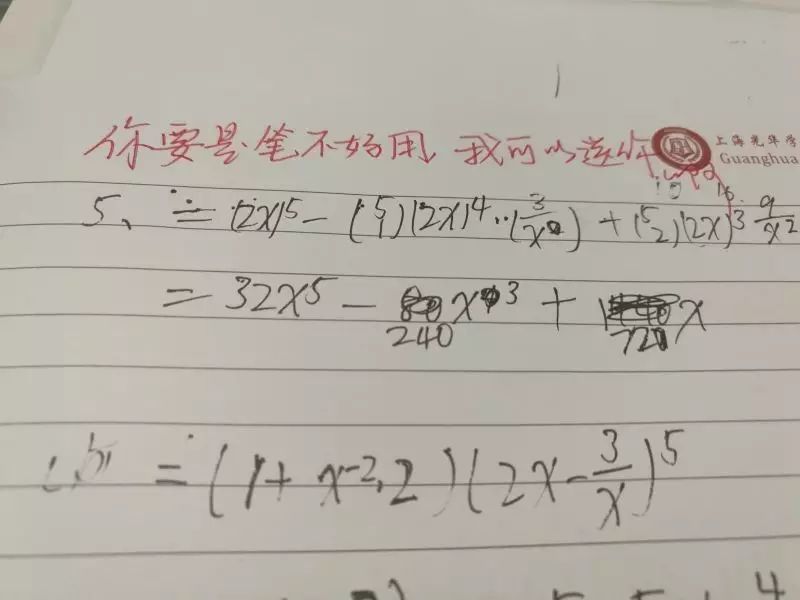 你要是笔不好用,我可以送你
上海光华学
Guanghua
5、= (2x)^5 - (5 1)(2x)^4·(3/x) + (5 2)(2x)^3 9/x^2
= 32x^5 - 240 x^3 + 720 x
= (1 + x^-2.2)(2x - 3/x)^5